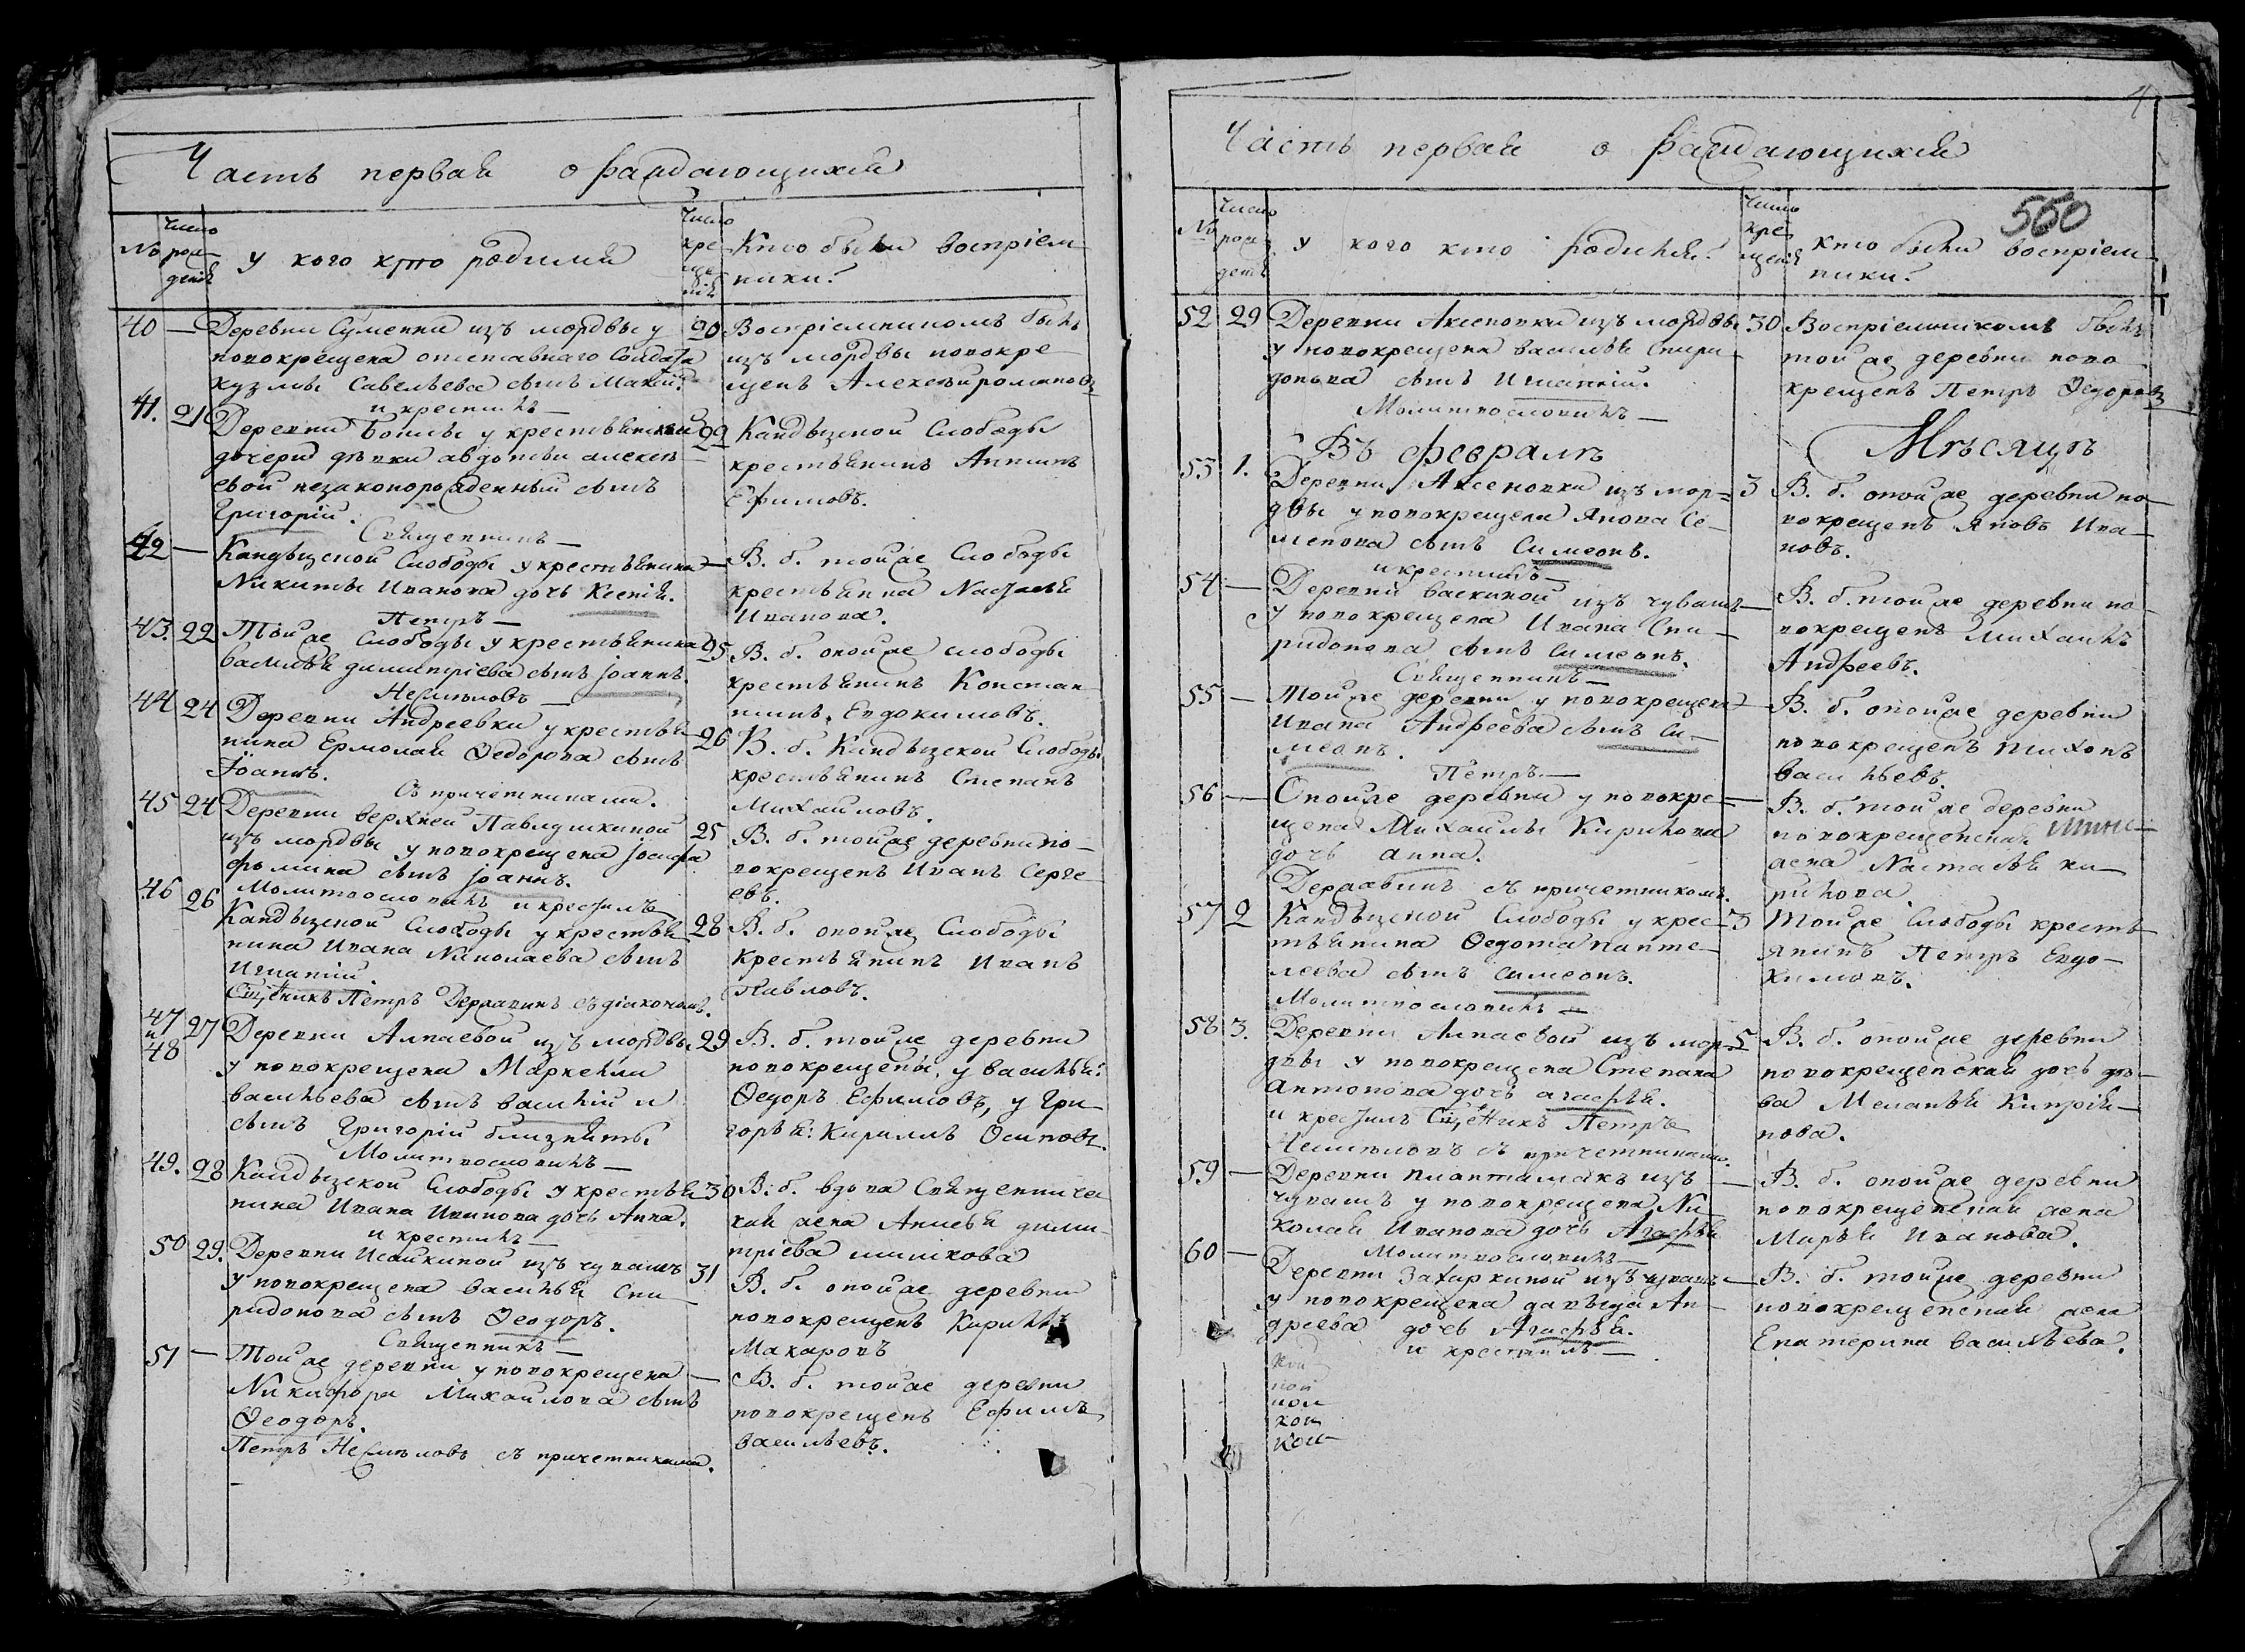 Часть первая о раждающихся
№
Число рождения
У кого кто родился
Число крещения
Кто были воспріемники?
40 — Деревни Суменки изъ мордвы у
новокрещена отставнаго Солдата
Кузмы Савельева сынъ
и крестилъ —
20 Воспріемникомъ былъ
изъ мордвы новокре
щенъ Алексей романовъ
41. 21 Деревни у крестьянской
дочери дѣвки авдотьи алексѣ
евой незаконорожденный сынъ
Григорій.
Священникъ —
22 Кандызской Слободы
крестьянинъ
Ефимовъ.
42 — Кандызской Слободы у крестьянина
Никиты Иванова дочь Ксенія.
Петръ —
— В. б. тойже Слободы
крестьянка Насталья
Иванова.
43. 22 Тойже Слободы у крестьянина
василья димитріева сынъ іоаннъ.
Несмѣловъ —
25 В. б. онойже слободы
крестьянинъ Констан
тинъ Евдокимовъ.
44 24 Деревни Андреевки у крестья
нина Ермолая Ѳедорова сынъ
Іоаннъ.
Съ причетниками.
26 В. б. Кандызской Слободы
крестьянинъ Степанъ
Михайловъ.
45 24 Деревни верхней Павлушкиной
изъ мордвы у новокрещена Іосифа
фомина сынъ Іоаннъ.
Молитвословилъ и крестилъ
25 В. б. тойже деревни но-
вокрещенъ Иванъ Серге
евъ.
46 26 Кандызской Слободы у крестья
нина Ивана Николаева сынъ
Игнатій.
Сщенникъ Петръ Державинъ съ діякономъ.
28 В. б. онойже Слободы
крестьянинъ Иванъ
Павловъ.
47 и 48 27 Деревни Алпаевой изъ мордвы
у новокрещена Маркелла
васильева сынъ василій и
сынъ Григорій близняты
Молитвословилъ —
29 В. б. тойже деревни
новокрещены, у василья:
Ѳедоръ Ефимовъ, у Гри
горья: Кириллъ Осиповъ.
49. 28 Кандызской Слободы у крестья
нина Ивана Иванова дочь Анна.
и крестилъ —
30 В. б. вдова Священничес
кая жена Анисья дими
тріева
50 29. Деревни Исайкиной изъ чувашъ
у новокрещена василья Спи
ридонова сынъ Ѳеодоръ.
Священникъ —
31 В. б. онойже деревни
новокрещенъ Кириллъ
Макаровъ
51 — Тойже деревни у новокрещена
Никифора Михайлова сынъ
Ѳеодоръ.
Петръ Несмѣловъ съ причетниками.
— В. б. тойже деревни
новокрещенъ Ефимъ
васильевъ.
4
Часть первая о раждающихся
560
№
Число рожденія
У кого кто родился?
Число крещенія
Кто были воспріем
ники?
52 29 Деревни Аксеновки изъ мордвы
у новокрещена василья Спири
донова сынъ Игнатій.
Молитвословилъ —
30 Воспріемникомъ былъ
тойже деревни ново
крещенъ Петръ Ѳедоровъ
Въ февралѣ
Мѣсяцѣ
53 1. Деревни Аксеновки изъ мор=
двы у новокрещена Якова Се-
менова сынъ Симеонъ.
и крестилъ —
3 В. б. онойже деревни но-
вокрещенъ Яковъ Ива-
новъ.
54 — Деревни васкиной изъ чувашъ
у новокрещена Ивана Спи-
ридонова сынъ симеонъ.
Священникъ —
— В. б. тойже деревни но-
вокрещенъ михаилъ
Андреевъ.
55 — Тойже деревни у новокрещена
Ивана Андреева сынъ Си-
меонъ.
Петръ —
— В. б. онойже деревни
новокрещенъ тихонъ
васильевъ.
56 — Онойже деревни у новокре-
щена Михайлы Кирилова
дочь анна.
Державинъ съ причетникомъ.
— В. б. тойже деревни
новокрещенская
жена Насталья ки-
рилова.
57 2 Кандызской Слободы у крес-
тьянина Ѳедота панте-
леева сынъ симеонъ.
Молитвословилъ —
3 Тойже Слободы кресть
янинъ Петръ Евдо-
кимовъ.
58 3. Деревни Алпаевой изъ мор-
двы у новокрещена Степана
антонова дочь агафья.
и крестилъ Сщенникъ Петръ
Несмѣловъ съ причетниками.
5 В. б. онойже деревни
новокрещенская дочь дѣ-
ва Меланья Кипрія-
нова.
59 — Деревни изъ
чувашъ у новокрещена Ни-
колая Иванова дочь Агафья
Молитвословилъ —
— В. б. онойже деревни
новокрещенская жена
Марья Иванова.
60 — Деревни Захаркиной изъ чувашъ
у новокрещена давыда Ан-
дреева дочь Агафья.
и крестилъ —
— В. б. тойже деревни
новокрещенская жена
Екатерина васильева.